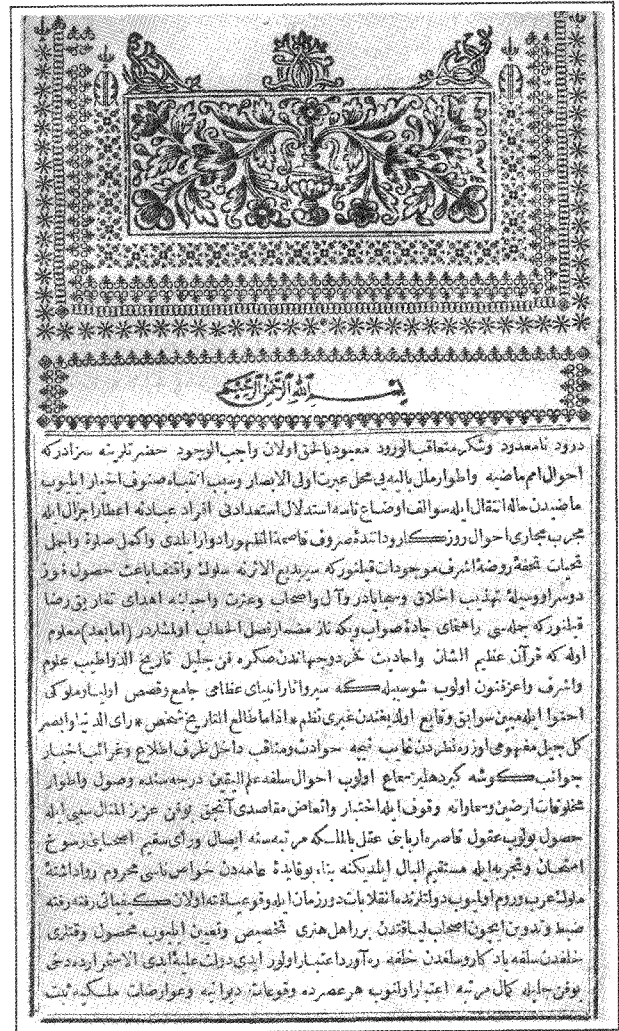 بسم الله الرحمن الرحيم
درود نامعدود وشكر متعاقب الورود معبود بالحق اولان واجب الوجود حضرتلرينه سزادر كه
احوال امم ماضيه واطوار ملل باليه يي محل عبرت اولى الابصار وسبب انتباه صنوف اخيار ايليوب
ماضيدن حاله انتقال ايله سوالف اوضاع ناسه استدلال استعدادنى افراد عبادنه اعطا واجزال ايله
مجرب مجارى احوال روزكار و داننده صروف قاصمة الظهور ادوار ايلدى واكمل صلوة واجمل
تحيات تحفه روضه اشرف موجودات قيلنور كه سربديع الاثرنه سلوك واقتفا باعث حصول فوز
دوسرا ووسيله تهذيب اخلاق وسجايادر وآل واصحاب وعترت واحبابنه اهداى تعاريق رضا
قيلنور كه جمله سى راهنماى جاده صواب ويكه تاز مضمار فصل الخطاب اولمشلردر (اما بعد) معلوم
اوله كه قرآن عظيم الشان واحاديث فخر دوجهاندن صكره فن جليل تاريخ الذ واطيب علوم
واشرف واعز فنون اولوب شو سببله كه سير وآثار انبياى عظامى جامع وقصص اوليا وملوكى
احتوا ايله مبين سوابق وقايع اولديغندن عبرى نظم * اذا ما طالع التاريخ شخص * راى الدنيا وابصر
كل جيل مفهومى اوزره نظردن غايب نيجه حوادث ومناقب داخل ظرف اطلاع وغرائب اخبار
جوانب كوشه كير دهليز سماع اولوب احوال سلفه علم اليقين درجه سنده وصول واطوار
مخلوقات ارضين وسماواته وقوف ايله اختيار واتعاض مقاصدى آنجق بوفن عزيز المنال سببى ايله
حصول بولوب عقول قاصره اربابنى عقل بالملكه مرتبه سنه ايصال وراى سقيم اصحابنى رسوخ
امتحان وتجربه ايله مستقيم البال ايلديكنه بناء بوفايده عامه دن خواص ناسى محروم روا داشته
ملوك عرب وروم اولميوب دولتلرنده انقلابات دور زمان ايله وقوعيافته اولان كيفياتى رفته رفته
ضبط وتدوين ايچون اصحاب لياقتدن بر اهل هنرى تخصيص وتعيين ايليوب محصول وقتلرى
خلفدن سلفه يادكار وسلفدن خلفه ره آورد اعتبار اولور ايدى دولت عليه ابدى الاستمرارده دخى
بوفن جليله كمال مرتبه اعتبار اولنوب هر عصرده وقوعات ديوانيه وعوارضات ملكيه ثبت